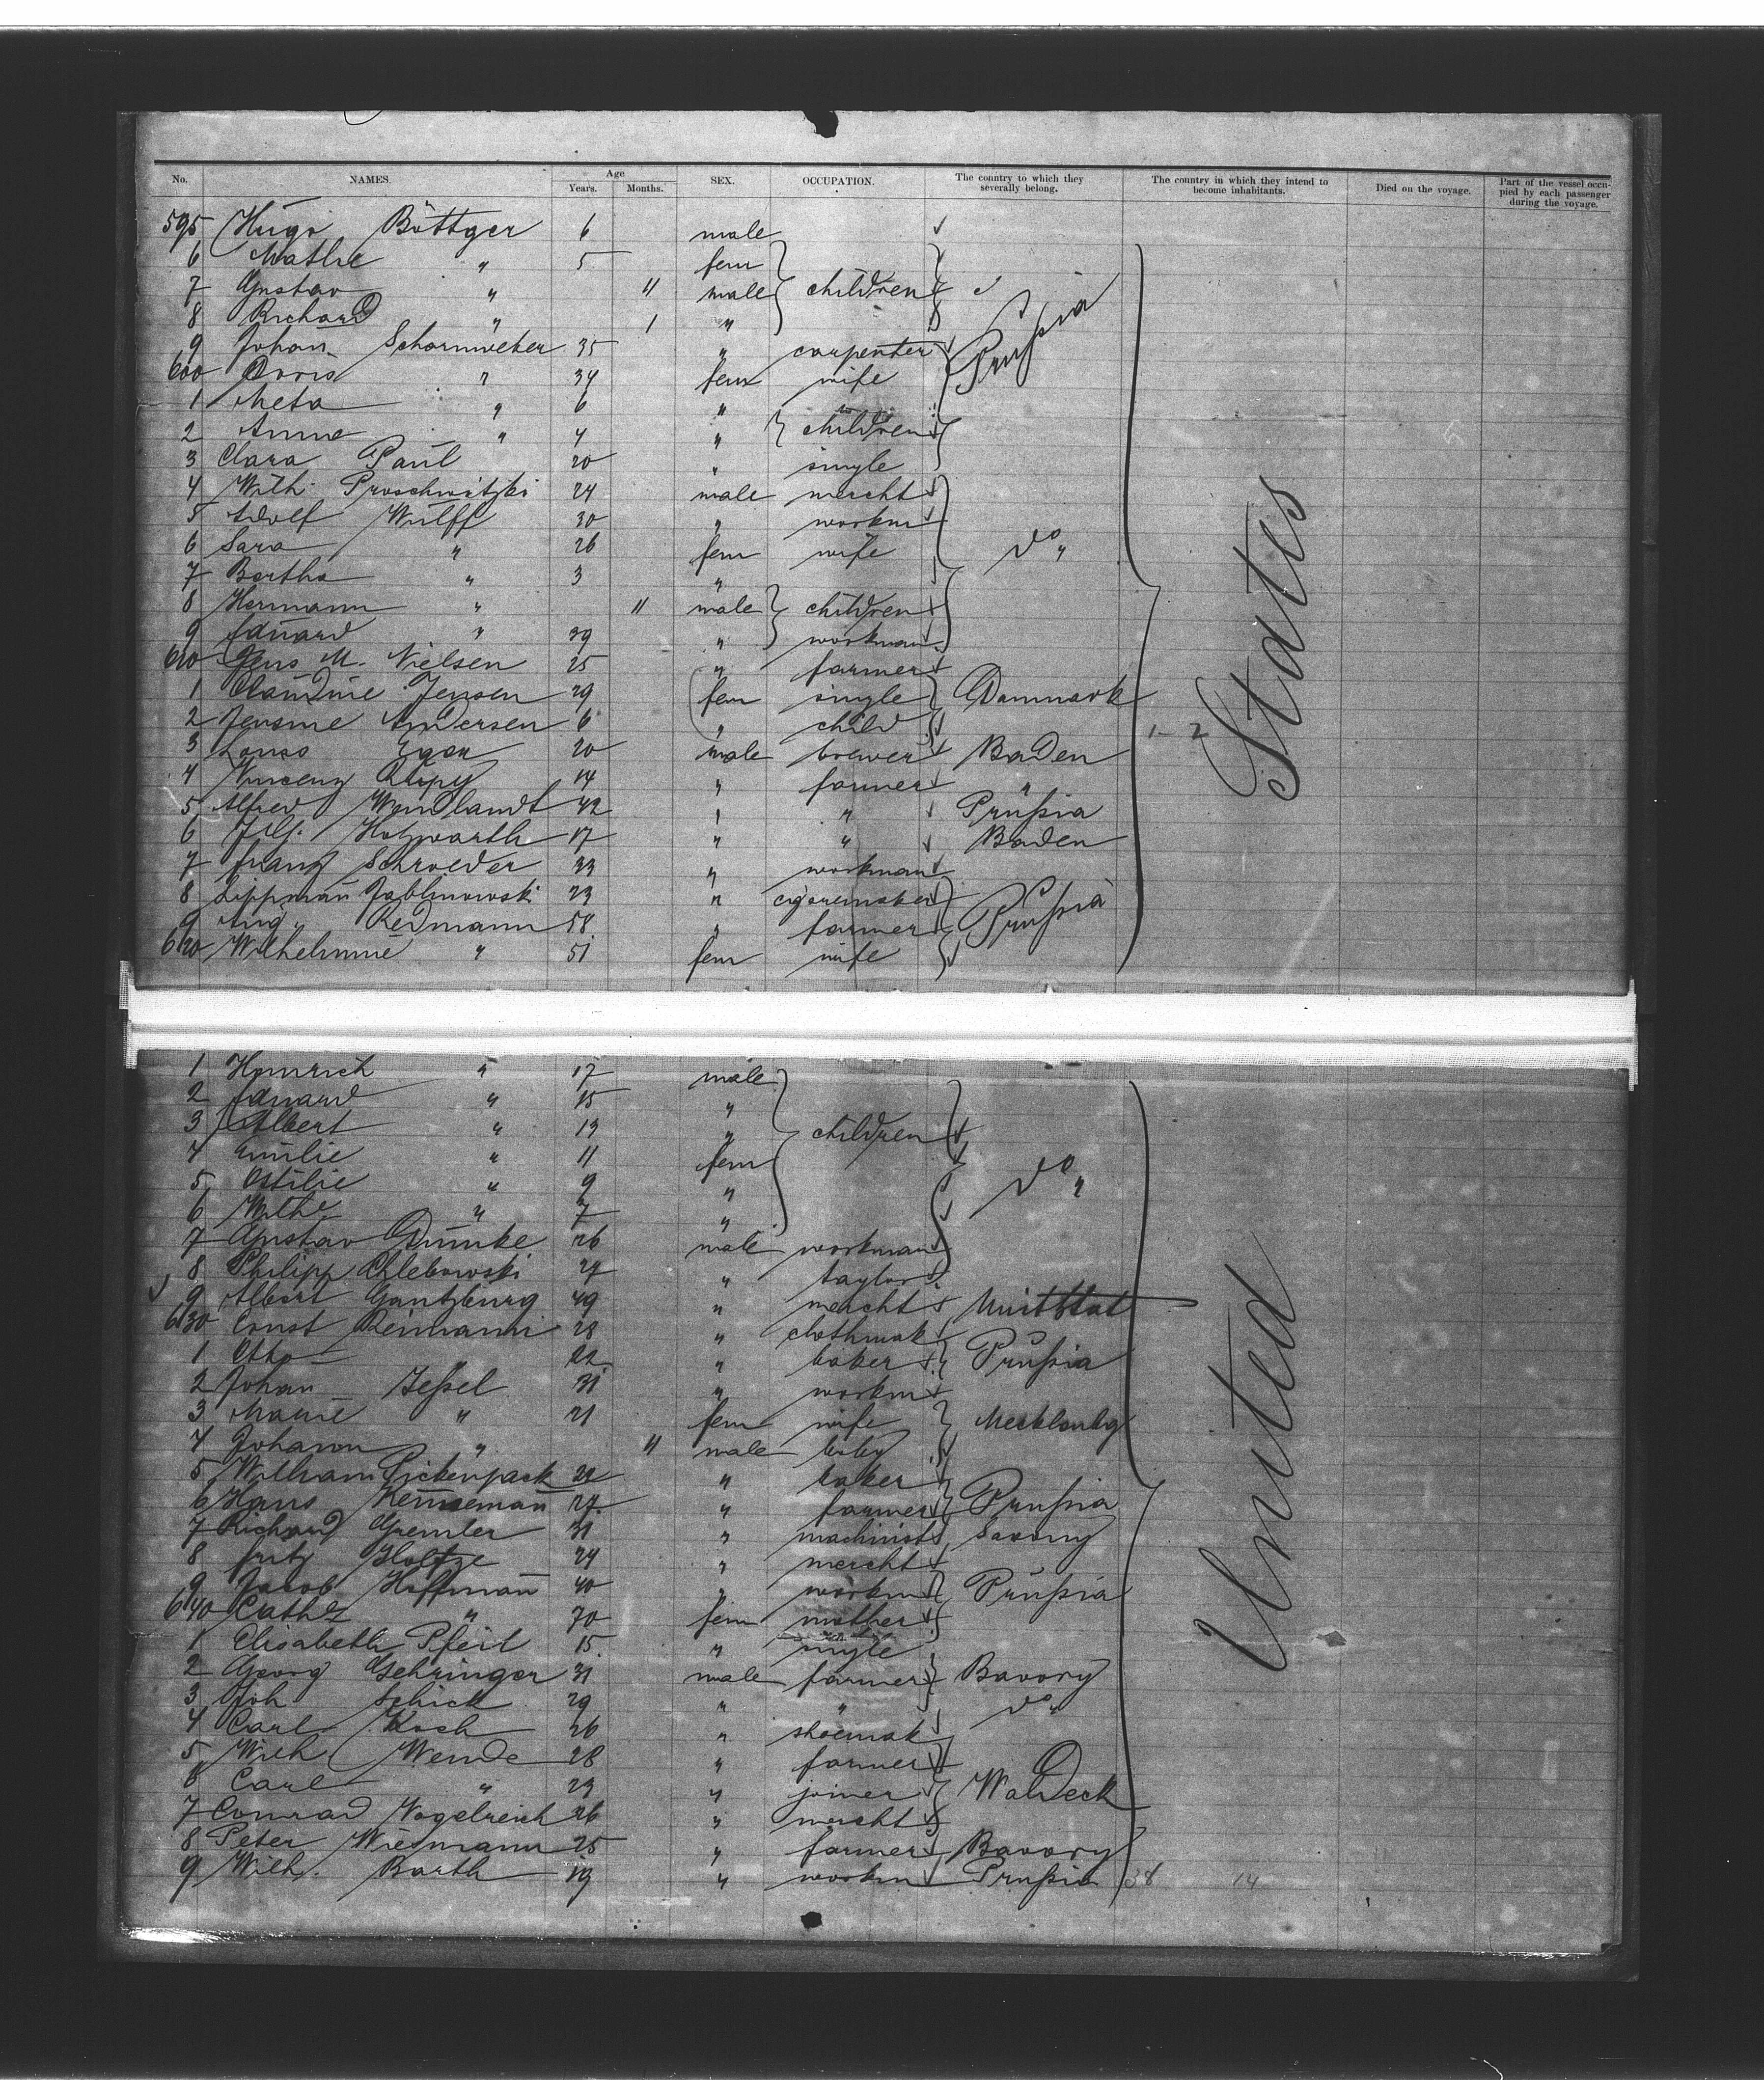 No. NAMES. Age Years. Months. SEX. OCCUPATION. The country to which they severally belong. The country in which they intend to become inhabitants. Died on the voyage. Part of the vessel occupied by each passenger during the voyage.
595 Hugo Böttger 6 male
6 Mathe " 5 fem
7 Gustav " 11 male children
8 Richard " 1 "
9 Johan Scharnweber 35 " carpenter Prußia
600 Doris " 34 fem wife
1 Meta " 6 "
2 Anna " 4 " children
3 Clara Paul 20 " single
4 Wilh. Proschwitzki 24 male mercht
5 Adolf Wulff 30 " workm
6 Sara " 26 fem wife do "
7 Bertha " 3 "
8 Hermann " 11 male children
9 Eduard " 29 " workman
610 Jens M. Nielsen 25 " farmer
1 Claudine Jensen 29 fem single Danmark
2 Jensine Andersen 6 " child
3 Louis Egon 20 male brewer Baden
4 Vincenz 14 " farmer "
5 Alfred Wendlandt 42 " " Prußia
6 Holzwarth 17 " " Baden
7 Franz Schroeder 33 " workman
8 Lippman Jablinowski 23 " cigaremaker
9 Aug. Redmann 58 " farmer Prußia
620 Wilhelmine " 51 fem wife
States
1 Heinrich " 17 male
2 Eduard " 15 "
3 Albert " 13 " children
4 Emilie " 11 fem
5 Ottilie " 9 " do "
6 Wilhe " 7 "
7 Gustav Dumke 26 male workman
8 Philipp Chlebowski 27 " taylor
9 Albert Gantzburg 49 " mercht Unit Stat
630 Ernst Remanni 28 " clothmak
1 Otto 22 " baker Prußia
2 Johan Jeßel 31 " workm
3 Marie " 21 fem wife Mecklenbg
4 Johann " 11 male baby
5 William Pickenpack 22 " baker
6 Hans Kennemañ 27 " farmer Prußia
7 Richard Gremler 31 " machinist Saxony
8 Fritz Holtze 24 " mercht
9 Jacob Hoffmañ 40 " workm Prußia
640 Cath " 70 fem mother
1 Elisabeth Pfeil 15 " single
2 Georg Gehringer 31 male farmer Bavory
3 Joh Schick 29 " " do "
4 Carl Koch 26 " shoemak
5 Wilh Wende 28 " farmer
6 Carl " 23 " joiner Waldeck
7 Conrad Vogelreich 26 " mercht
8 Peter Wiesmann 25 " farmer Bavory
9 Wilh. Barth 19 " workm Prußia 38 14
United